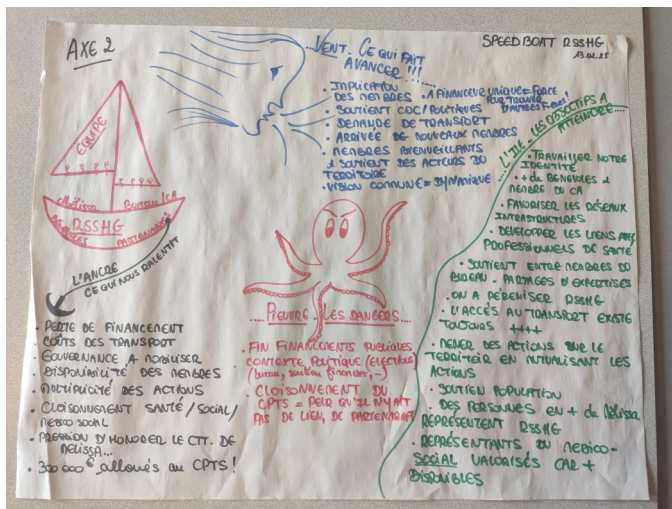 AXE 2
VENT. CE QUI FAIT
AVANCER !!!
SPEED BOAT RSSHG
13.02.25
. IMPLICATION
DES MEMBRES
. 1 FINANCEUR UNIQUE = FORCE
POUR TROUVER
D'AUTRES
. SOUTIENT CDC/POLITIQUES
. DEMANDE DE TRANSPORT
. ARRIVÉE DE NOUVEAUX MEMBRES
. MEMBRES BIENVEILLANTS
& SOUTIENT DES ACTEURS DU
TERRITOIRE
. VISION COMMUNE = DYNAMIQUE
EQUIPE
Mélissa Bureau/CA
RSSHG
MEMBRES PARTENAIRES
L'ANCRE
CE QUI NOUS RALENTIT
. PERTE DE FINANCEMENT
COÛTS DES TRANSPORT
. GOUVERNANCE A MOBILISER
. DISPONIBILITÉ DES MEMBRES
. MULTIPLICITÉ DES ACTIONS
. CLOISONNEMENT SANTÉ/SOCIAL/
MEDICO SOCIAL
. PRESSION D'HONORER LE CTT. DE
MELISSA...
. 300 000 € alloués au CPTS !
PIEUVRE. LES DANGERS...
. FIN FINANCEMENTS PUBLIQUES
CONTEXTE POLITIQUE (ELECTIONS
(bureau, soutien financier, ...)
. CLOISONNEMENT DU
CPTS = PEUR QU'IL N'Y AIT
PAS DE LIEN, DE PARTENARIAT
L'ILE. LES OBJECTIFS A
ATTEINDRE...
. TRAVAILLER NOTRE
IDENTITÉ
. + de BENEVOLES &
MEMBRE DU CA
. FAVORISER LES RÉSEAUX
INFRASTRUCTURES
. DEVELOPPER LES LIENS AVEC
PROFESSIONNELS DE SANTÉ
. SOUTIENT ENTRE MEMBRES DU
BUREAU. PARTAGES D'EXPERTISES
. ON A PÉRENISER RSSHG
. L'ACCÈS AU TRANSPORT EXISTE
TOUJOURS ++++
. MENER DES ACTIONS SUR LE
TERRITOIR EN MUTUALISANT LES
ACTIONS
. SOUTIEN POPULATION
. DES PERSONNES EN + de Mélissa
REPRÉSENTENT RSSHG
. REPRÉSENTANTS DU MEDICO-
SOCIAL VALORISÉS CAR +
DISPONIBLES